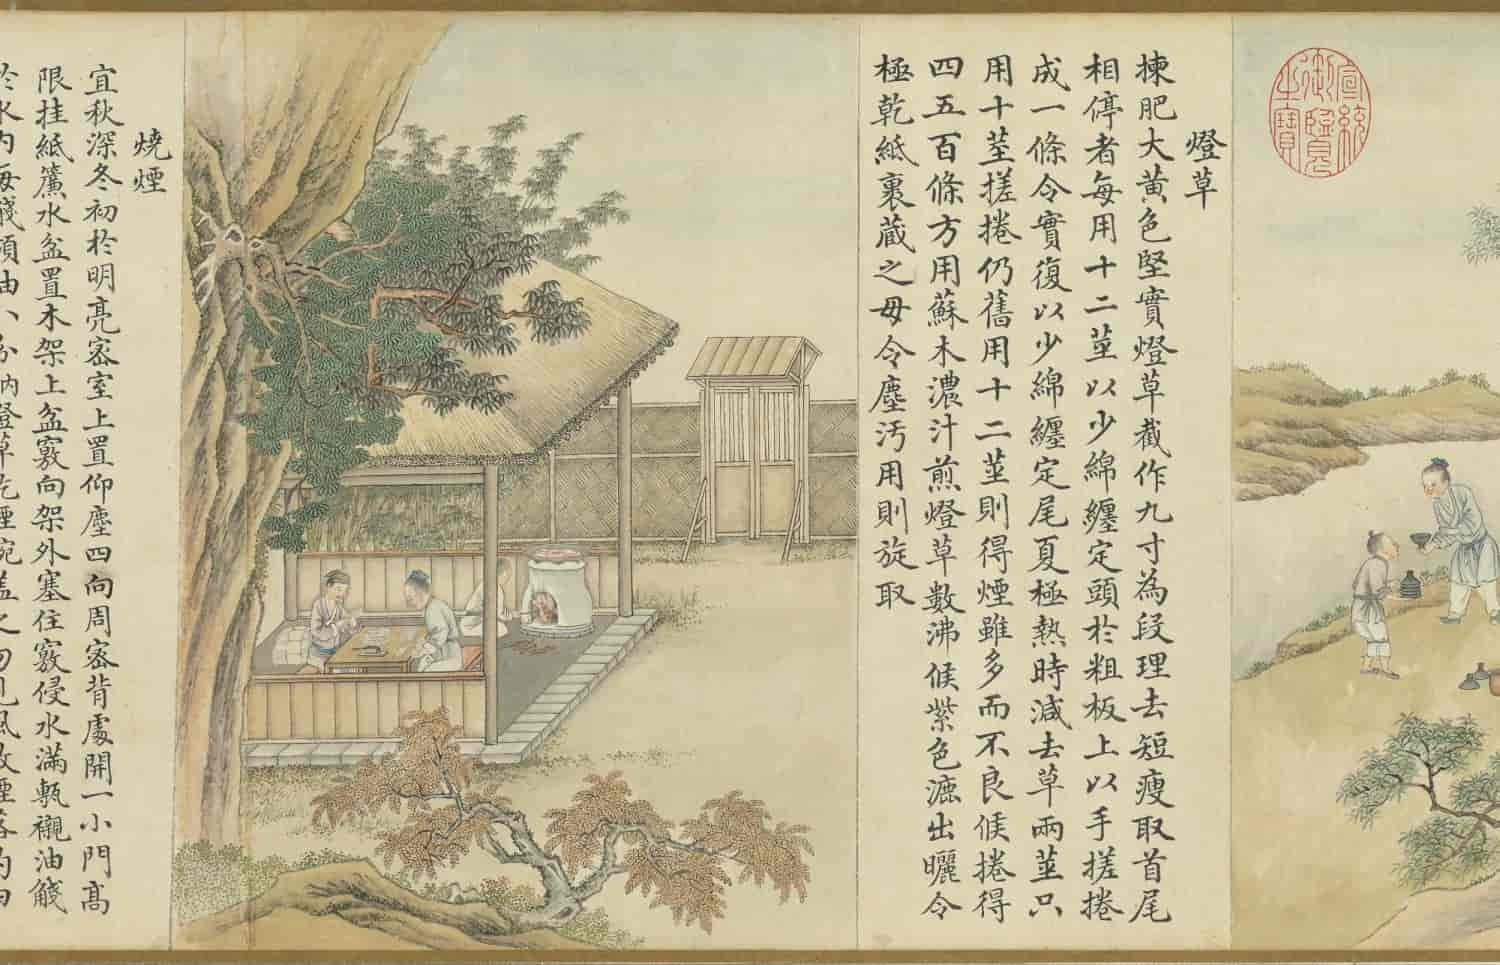 宣統
御覽
之寶
燈草
揀肥大黃色堅實燈草截作九寸為段理去短瘦取首尾
相停者每用十二莖以少綿纏定頭於粗板上以手搓捲
成一條令實復以少綿纏定尾夏極熱時減去草兩莖只
用十莖搓捲仍舊用十二莖則得煙雖多而不良候捲得
四五百條方用蘇木濃汁煎燈草數沸候紫色漉出曬令
極乾紙裹藏之毋令塵汚用則旋取
燒煙
宜秋深冬初於明亮密室上置仰塵四向周密背處開一小門高
限挂紙簾水盆置木架上盆竅向架外塞住竅侵水滿甎襯油
於水內每油八分納燈草訖煙碗蓋之勿見風致煙落